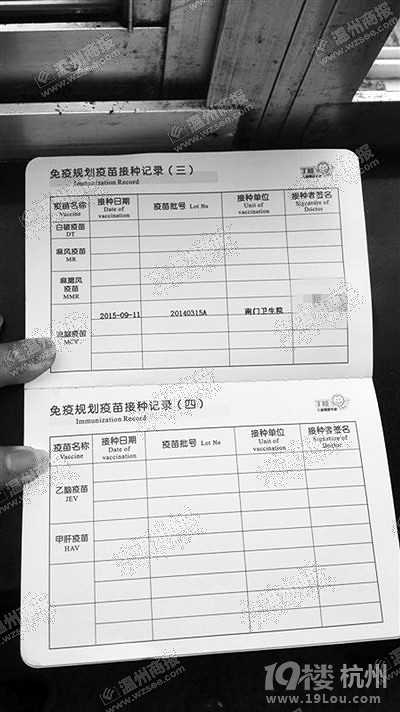 免疫规划疫苗接种记录（三）
Immunization Record
疫苗名称 接种日期 疫苗批号 Lot No 接种单位 接种者签名
Vaccine Date of vaccination Unit of vaccination Signature of Doctor
白破疫苗
DT
麻风疫苗
MR
麻腮风
疫苗
MMR
2015-09-11 20140315A 南门卫生院
流脑疫苗
MCV
免疫规划疫苗接种记录（四）
Immunization Record
疫苗名称 接种日期 疫苗批号 Lot No 接种单位 接种者签名
Vaccine Date of vaccination Unit of vaccination Signature of Doctor
乙脑疫苗
JEV
甲肝疫苗
HAV
温州商报
www.wzsee.com
19楼 杭州
www.19Lou.com